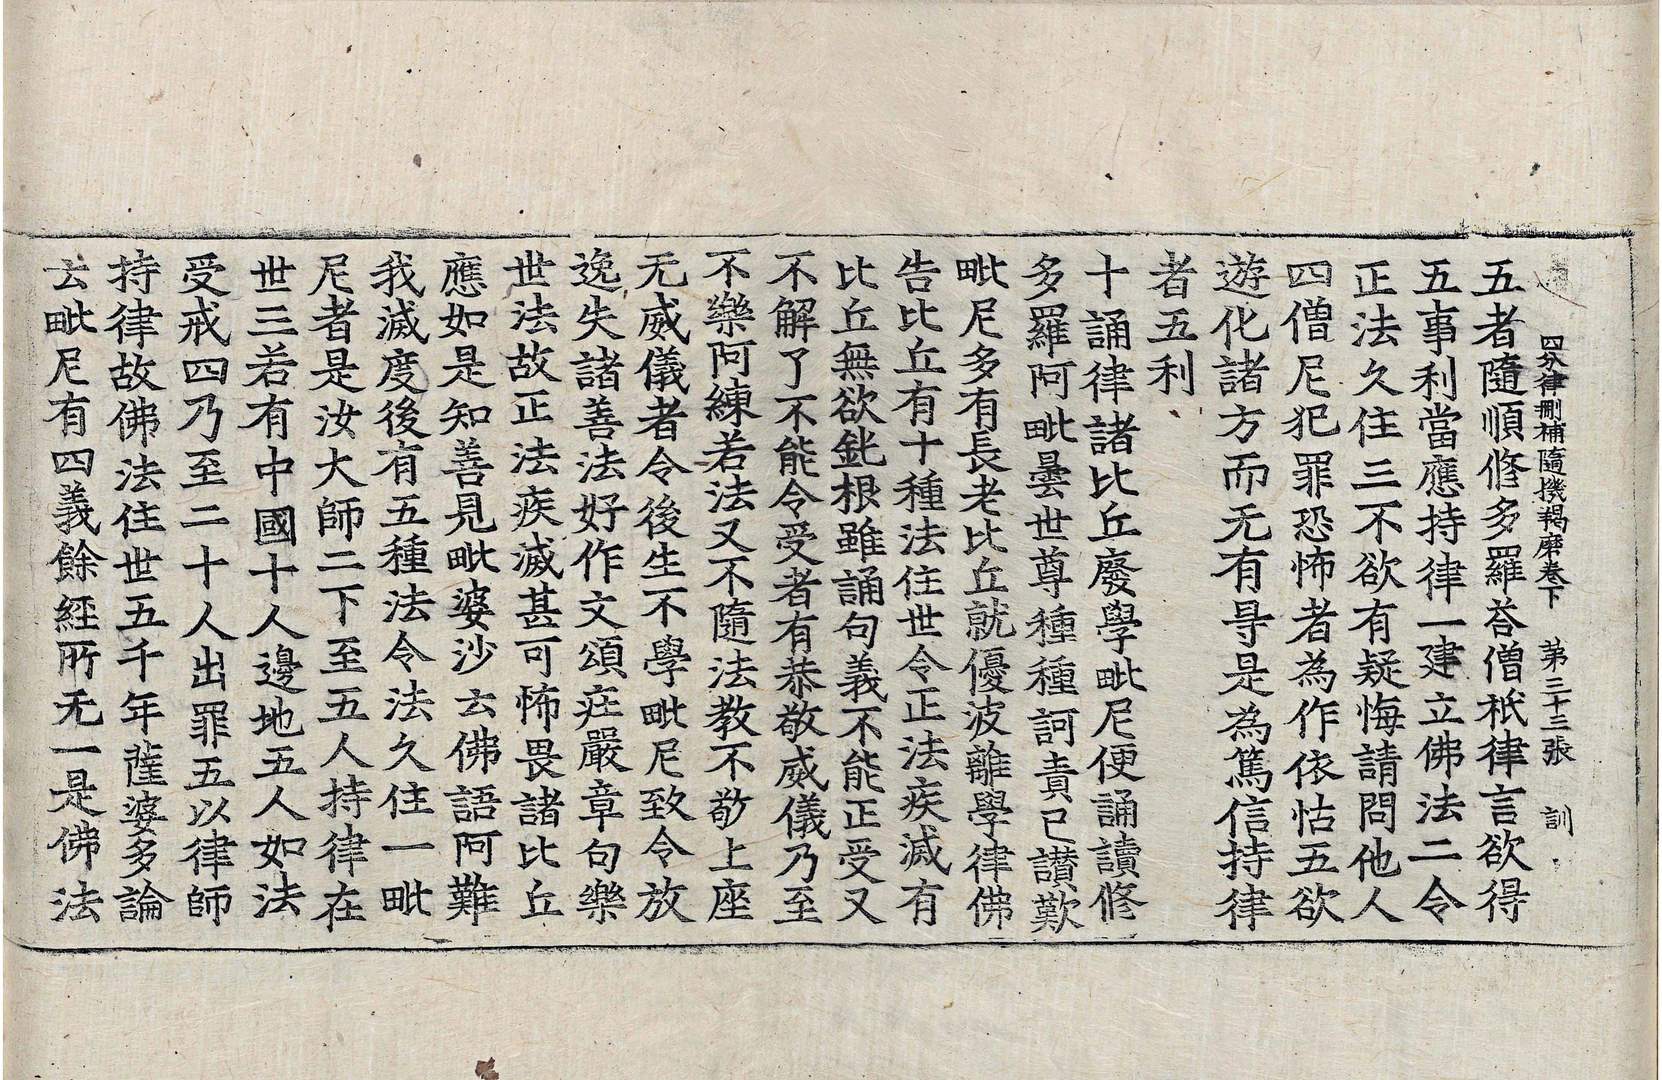 四分律刪補隨機羯磨卷下 第三十三張 訓
五者隨順修多羅荅僧祇律言欲得
五事利當應持律一建立佛法二令
正法久住三不欲有疑悔請問他人
四僧尼犯罪恐怖者為作依怙五欲
遊化諸方而无有㝵是為篤信持律
者五利
十誦律諸比丘廢學毗尼便誦讀修
多羅阿毗曇世尊種種訶責已讃歎
毗尼多有長老比丘就優波離學律佛
告比丘有十種法住世令正法疾滅有
比丘無欲鈍根雖誦句義不能正受又
不解了不能令受者有恭敬威儀乃至
不樂阿練若法又不隨法教不敬上座
无威儀者令後生不學毗尼致令放
逸失諸善法好作文頌莊嚴章句樂
世法故正法疾滅甚可怖畏諸比丘
應如是知善見毗婆沙云佛語阿難
我滅度後有五種法令法久住一毗
尼者是汝大師二下至五人持律在
世三若有中國十人邊地五人如法
受戒四乃至二十人出罪五以律師
持律故佛法住世五千年薩婆多論
云毗尼有四義餘經所无一是佛法